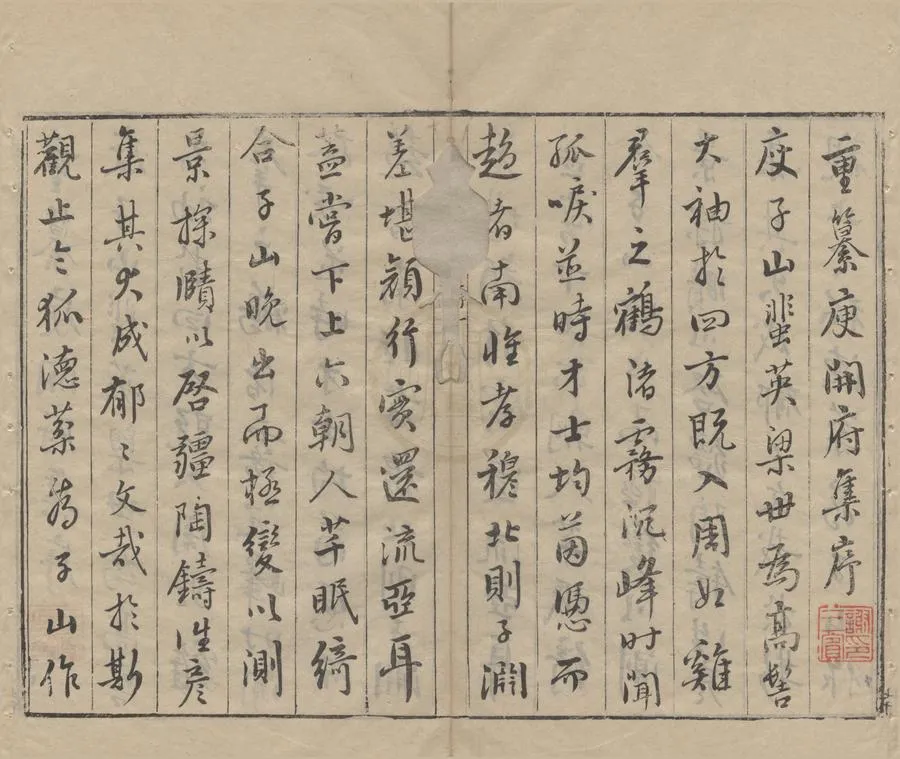 重纂庾開府集序
庾子山蜚英梁世為高髻
大袖於四方既入周如雞
羣之鶴渚霧沉峰时聞
孤唳並時才士均茵憑而
趋者南惟孝穆北則子淵
差堪頡行實還流亞耳
蓋嘗下上六朝人芊眠綺
合子山晚出而極變以測
景探賾以啓疆陶鑄往彥
集其大成郁〻文哉於斯
觀止今狐德棻為子山作